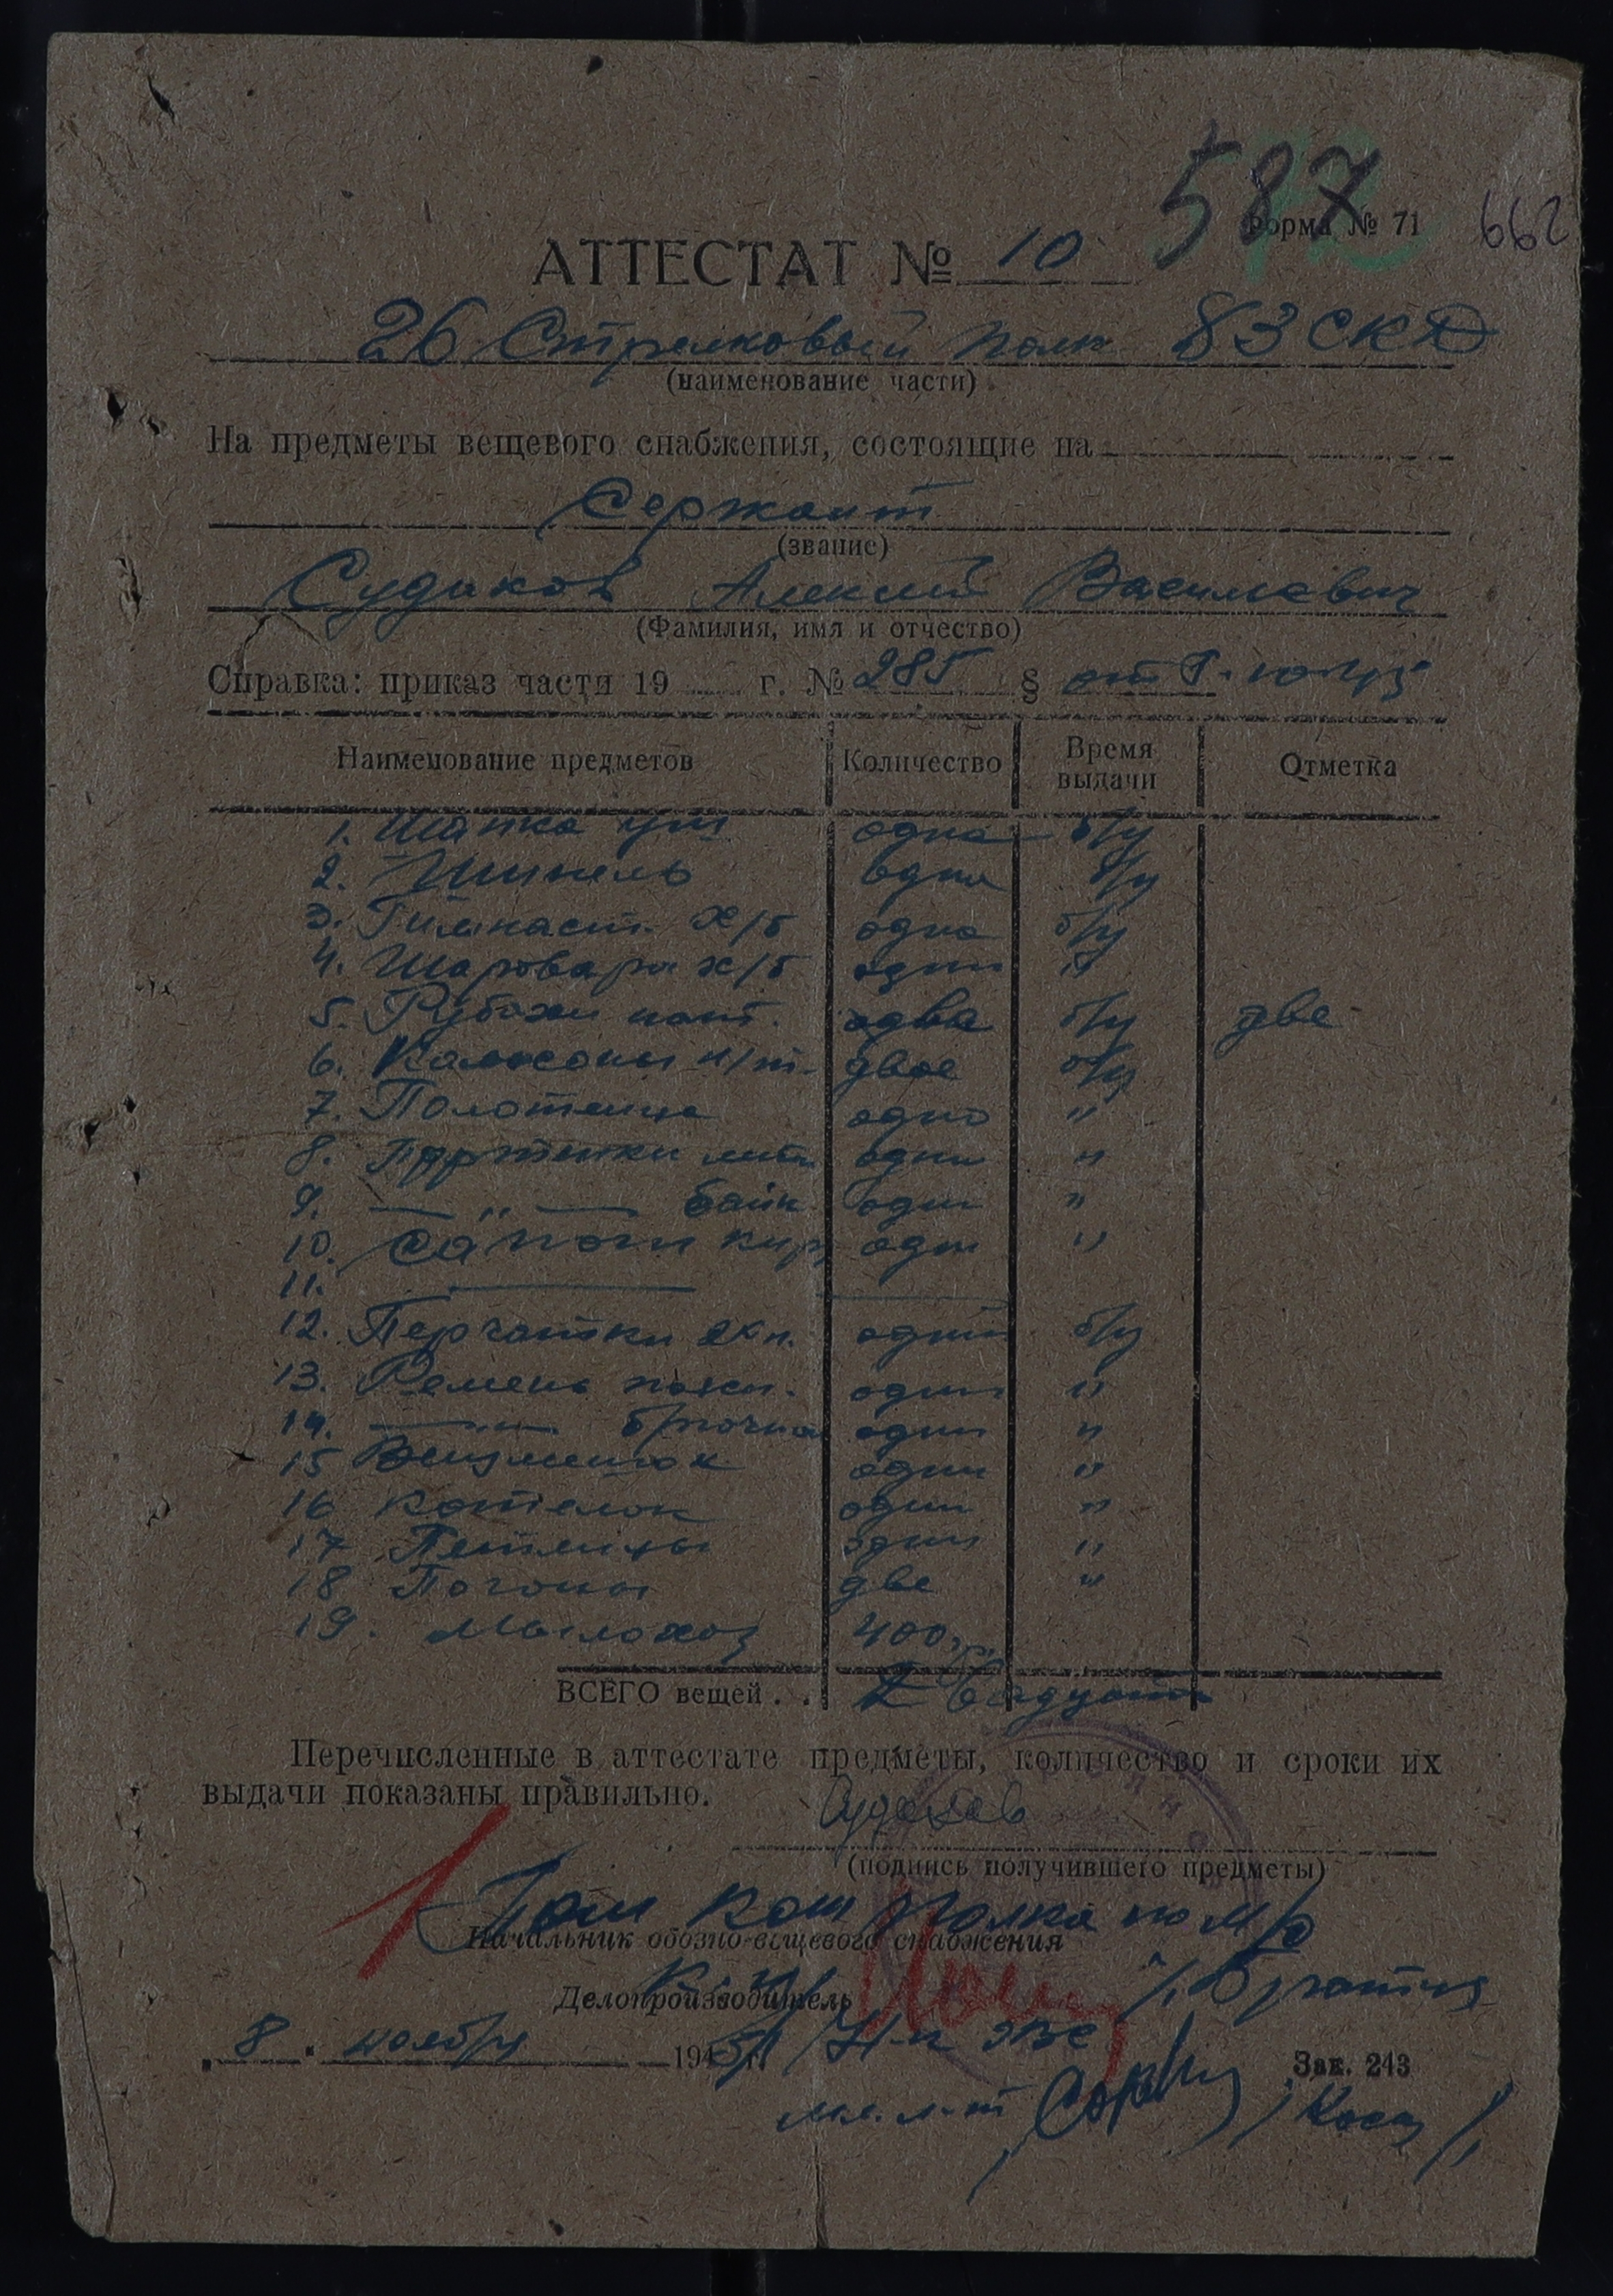 587
Форма № 71
662
АТТЕСТАТ № 10
26 Стрелковый полк 83 СКД
(наименование части)
На предметы вещевого снабжения, состоящие на
Сержант
(звание)
Судаков Алексей Василевич
(Фамилия, имя и отчество)
Справка: приказ части 19 г. № 285 § от
Наименование предметов Количество Время выдачи Отметка
1. Шапка уш одна б/у
2. Шинель одна б/у
3. Гимнаст. х/б одна б/у
4. Шаровары х/б одни "
5. Рубахи нат. одна б/у две
6. Кальсоны н/т. двое б/у
7. Полотенце одно "
8. Портянки летн одни "
9. — " — байк одни "
10. Сапоги кир одни "
11. —
12. Перчатки одни б/у
13. Ремень поясн. один "
14. — " — брючной один "
15 Вещмешок один "
16 Котелок один "
17 Петлицы одни "
18 Погоны две "
19. Мылохоз 400 гр.
ВСЕГО вещей . .
Перечисленные в аттестате предметы, количество и сроки их
выдачи показаны правильно.
Судаков
(подпись получившего предметы)
Пом ком полка по м/о
Начальник обозно-вещевого снабжения
Делопроизводитель
8 . ноября 194 г. Н-к ОВС
Зак. 243
мл. л-т